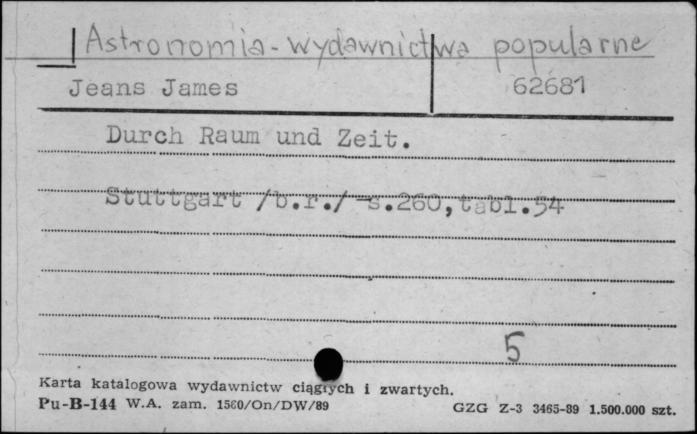 Astronomia - wydawnictwa popularne
Jeans James 62681
Durch Raum und Zeit.
Stuttgart /b.r./ s.260, tabl.54
5
Karta katalogowa wydawnictw ciągłych i zwartych.
Pu-B-144 W.A. zam. 1560/On/DW/89 GZG Z-3 3465-89 1.500.000 szt.